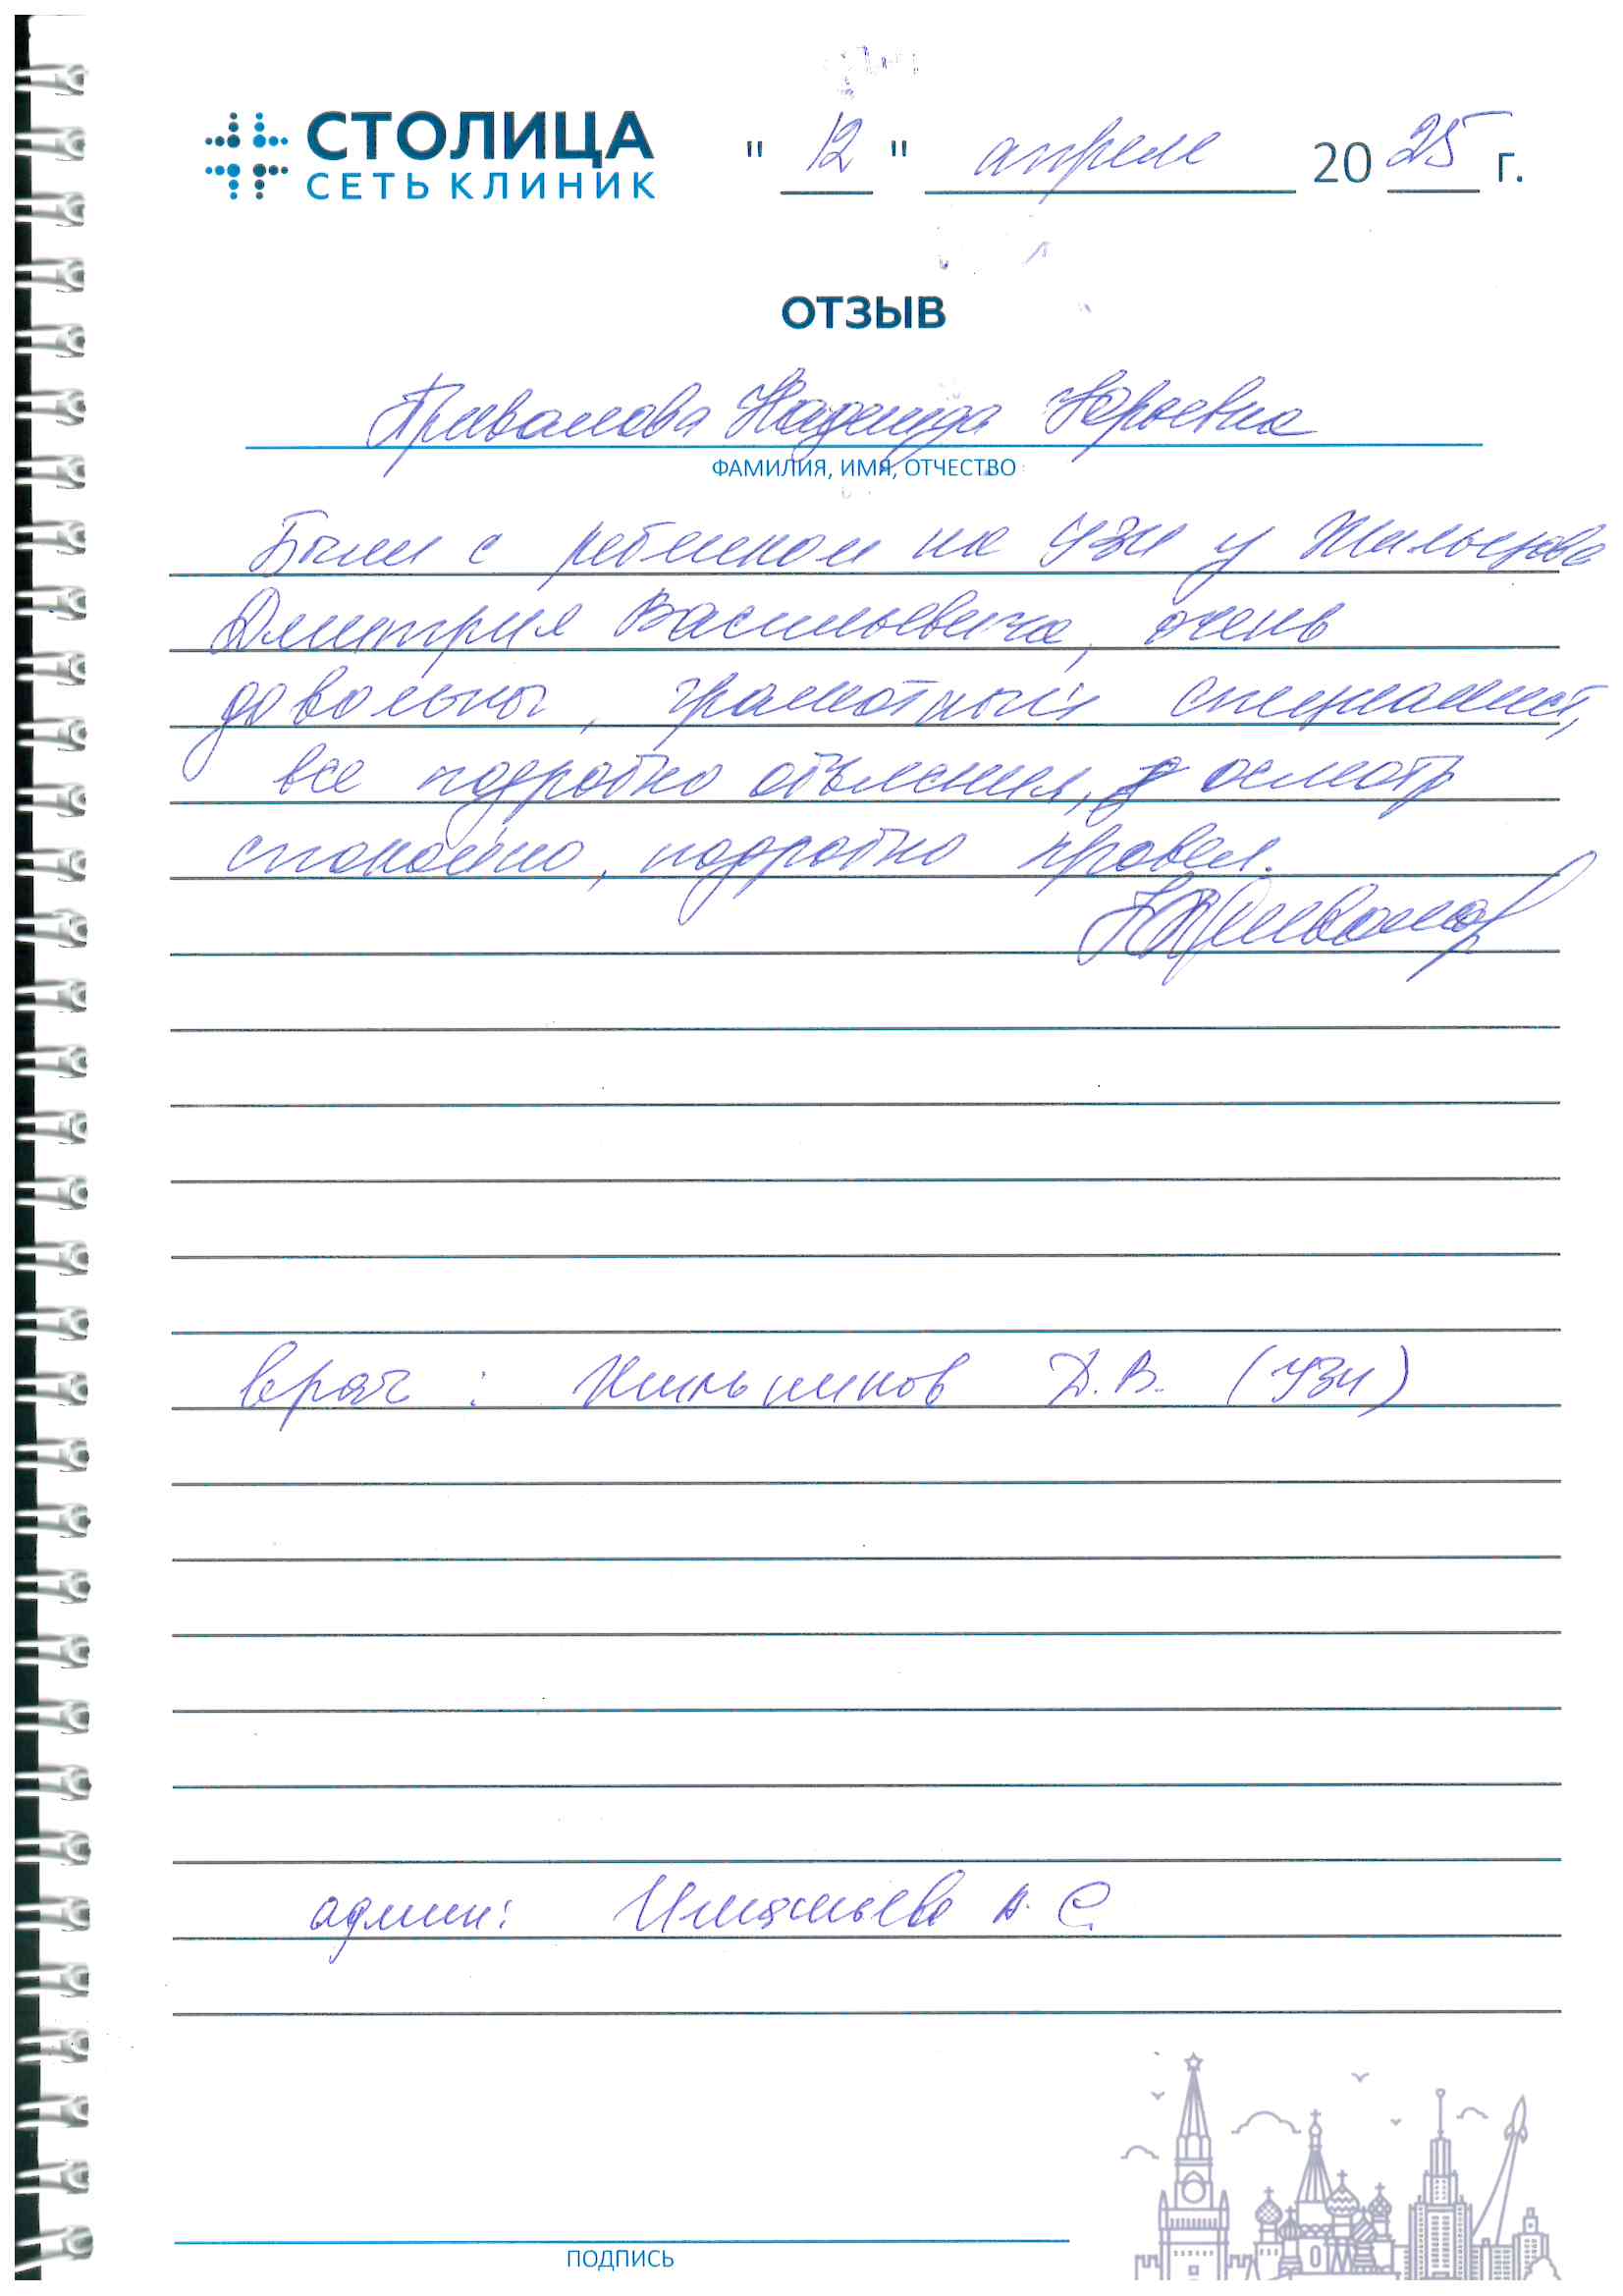 СТОЛИЦА
СЕТЬ КЛИНИК
" 12 " апреля 20 25 г.
ОТЗЫВ
Привалова Надежда Юрьевна
ФАМИЛИЯ, ИМЯ, ОТЧЕСТВО
Были с ребенком на УЗИ у
Дмитрия Васильевича, очень
довольны, грамотный специалист,
все подробно объяснил, осмотр
спокойно, подробно провел.
врач : Д.В. (УЗИ)
админ: А. С.
ПОДПИСЬ